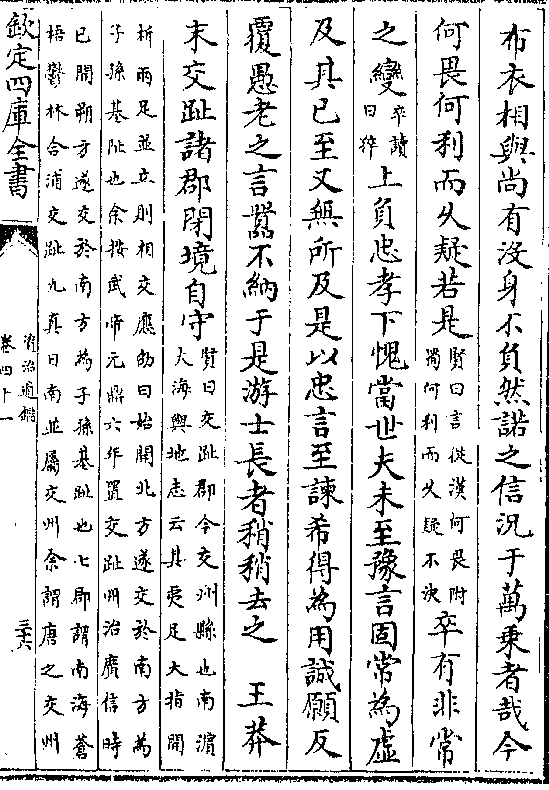 布衣相與尚有沒身不負然諾之信況于萬乘者哉今
何畏何利而乆疑若是賢曰言從漢何畏附蜀何利而乆疑不決卒有非常
之變卒讀曰猝上負忠孝下愧當世夫未至豫言固常為虛
及其已至又無所及是以忠言至諫希得為用誠願反
覆愚老之言囂不納于是游士長者稍稍去之　王莽
末交趾諸郡閉境自守賢曰交趾郡今交州縣也南濵大海輿地志云其夷足大指開
析兩足並立則相交應劭曰始開北方遂交於南方為
子孫基阯也余按武帝元鼎六年置交趾州治廣信時
已開朔方遂交於南方為子孫基趾也七郡謂南海蒼
梧鬱林合浦交趾九真日南並屬交州余謂唐之交州
欽定四庫全書
資治通鑑
卷四十一
三十六